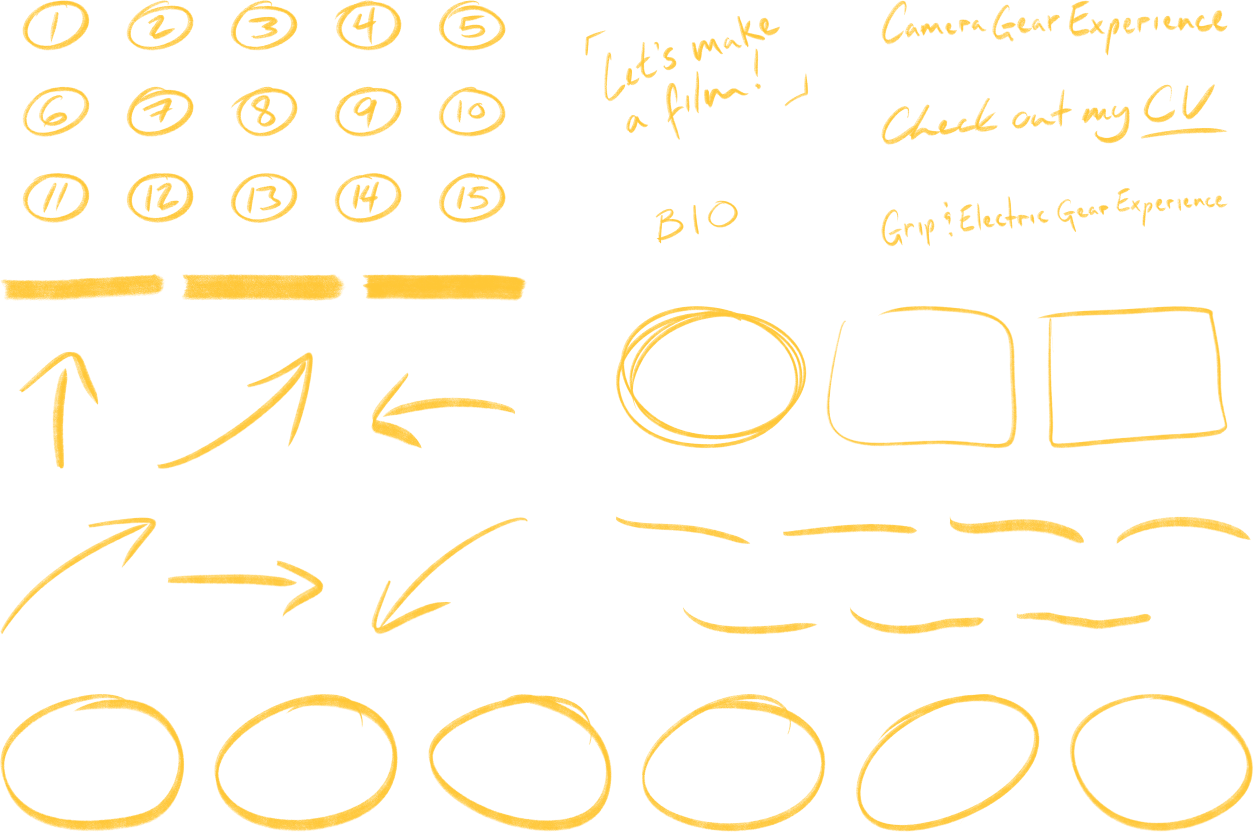 1 2 3 4 5
6 7 8 9 10
11 12 13 14 15
「Let's make
a film!」
BIO
Camera Gear Experience
Check out my CV
Grip & Electric Gear Experience